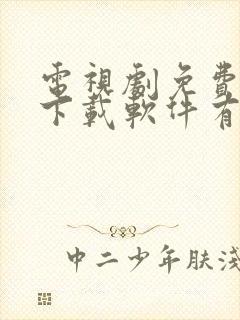 電視劇免費
下載軟件有
中二少年肤浅